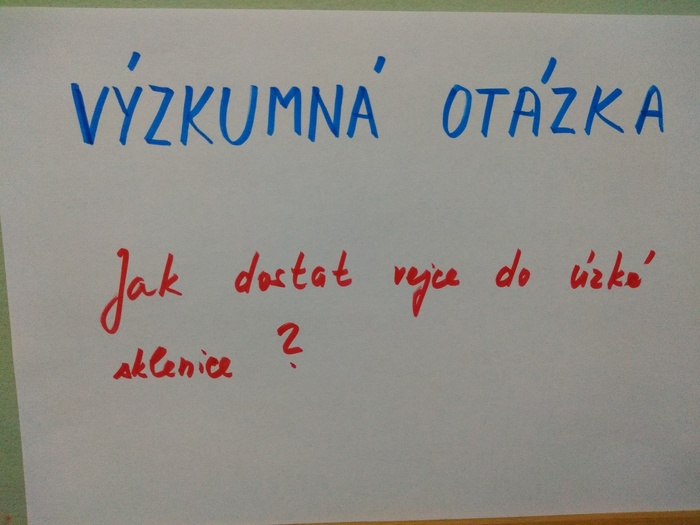 VÝZKUMNÁ OTÁZKA
Jak dostat vejce do úzké
sklenice ?